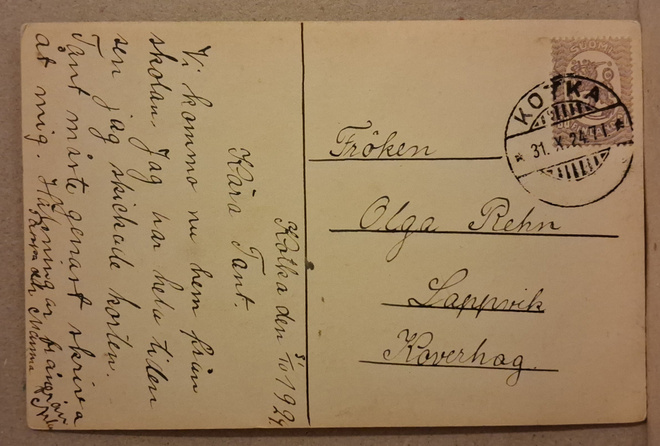 Kotka den 31/X 1924
Kära Tant.
Vi kommo nu hem från
skolan. Jag har hela tiden
sen jag skickade korten.
Tant måste genast skriva
åt mig. Hälsningar från
Mamma
SUOMI
KOTKA
31.X.24 71
Fröken
Olga Rehn
Lappvik
Koverhag.